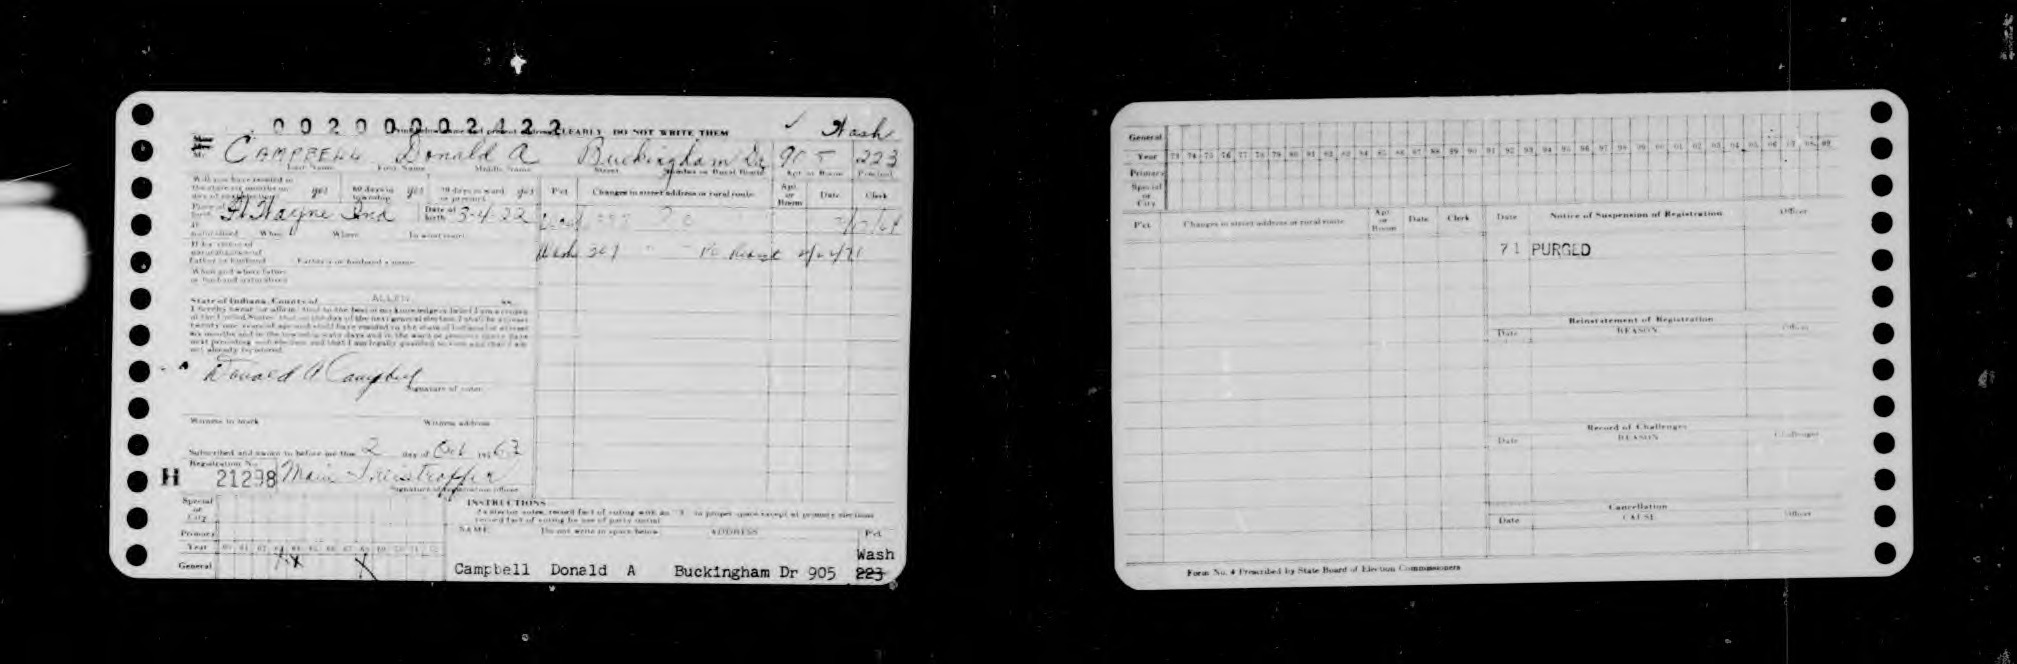 00200002422
CLEARLY DO NOT WRITE THEM Wash
Mr. CAMPBELL Donald A Buckingham Dr 905 223
Last Name First Name Middle Name Street Number or Rural Route Apt or Room Precinct
Will you have resided in
the state six months on yes 60 days in yes 30 days in ward yes Pct Changes in street address or rural route Apt. or Room Date Clerk
township or precinct
Place of birth Ft Wayne Ind Date of birth 3-4-22
naturalized When Where In what court
Wash 307
Father or husband Father's or husband's name
When and where father
or husband naturalized
State of Indiana, County of ALLEN ss.
I hereby swear (or affirm) that to the best of my knowledge or belief I am a citizen
of the United States, that on the day of the next general election, I shall be at least
twenty-one years of age and shall have resided in the state of Indiana for at least
six months and in the township sixty days and in the ward or precinct thirty days
next preceding such election and that I am legally qualified to vote and that I am
not already registered.
Donald A Campbell
Signature of voter
Witness to mark Witness address
Subscribed and sworn to before me this 2 day of Oct 1963
Registration No.
H 21298
Signature of registration officer
Special or City
INSTRUCTIONS
If a elector votes, record fact of voting with an "X" in proper space except at primary elections
record fact of voting by use of party initial
Primary NAME Do not write in space below ADDRESS Pct
Year 60 61 62 63 64 65 66 67 68 69 70 71 72
General X X X
Wash
Campbell Donald A Buckingham Dr 905 223
General
Year 73 74 75 76 77 78 79 80 81 82 83 84 85 86 87 88 89 90 91 92 93 94 95 96 97 98 99 00 01 02 03 04 05 06 07 08 09
Primary
Special or City
Pct Changes in street address or rural route Apt. or Room Date Clerk Date Notice of Suspension of Registration Officer
71 PURGED
Reinstatement of Registration
Date REASON Officer
Record of Challenges
Date REASON Challenger
Cancellation
Date CAUSE Officer
Form No. 4 Prescribed by State Board of Election Commissioners